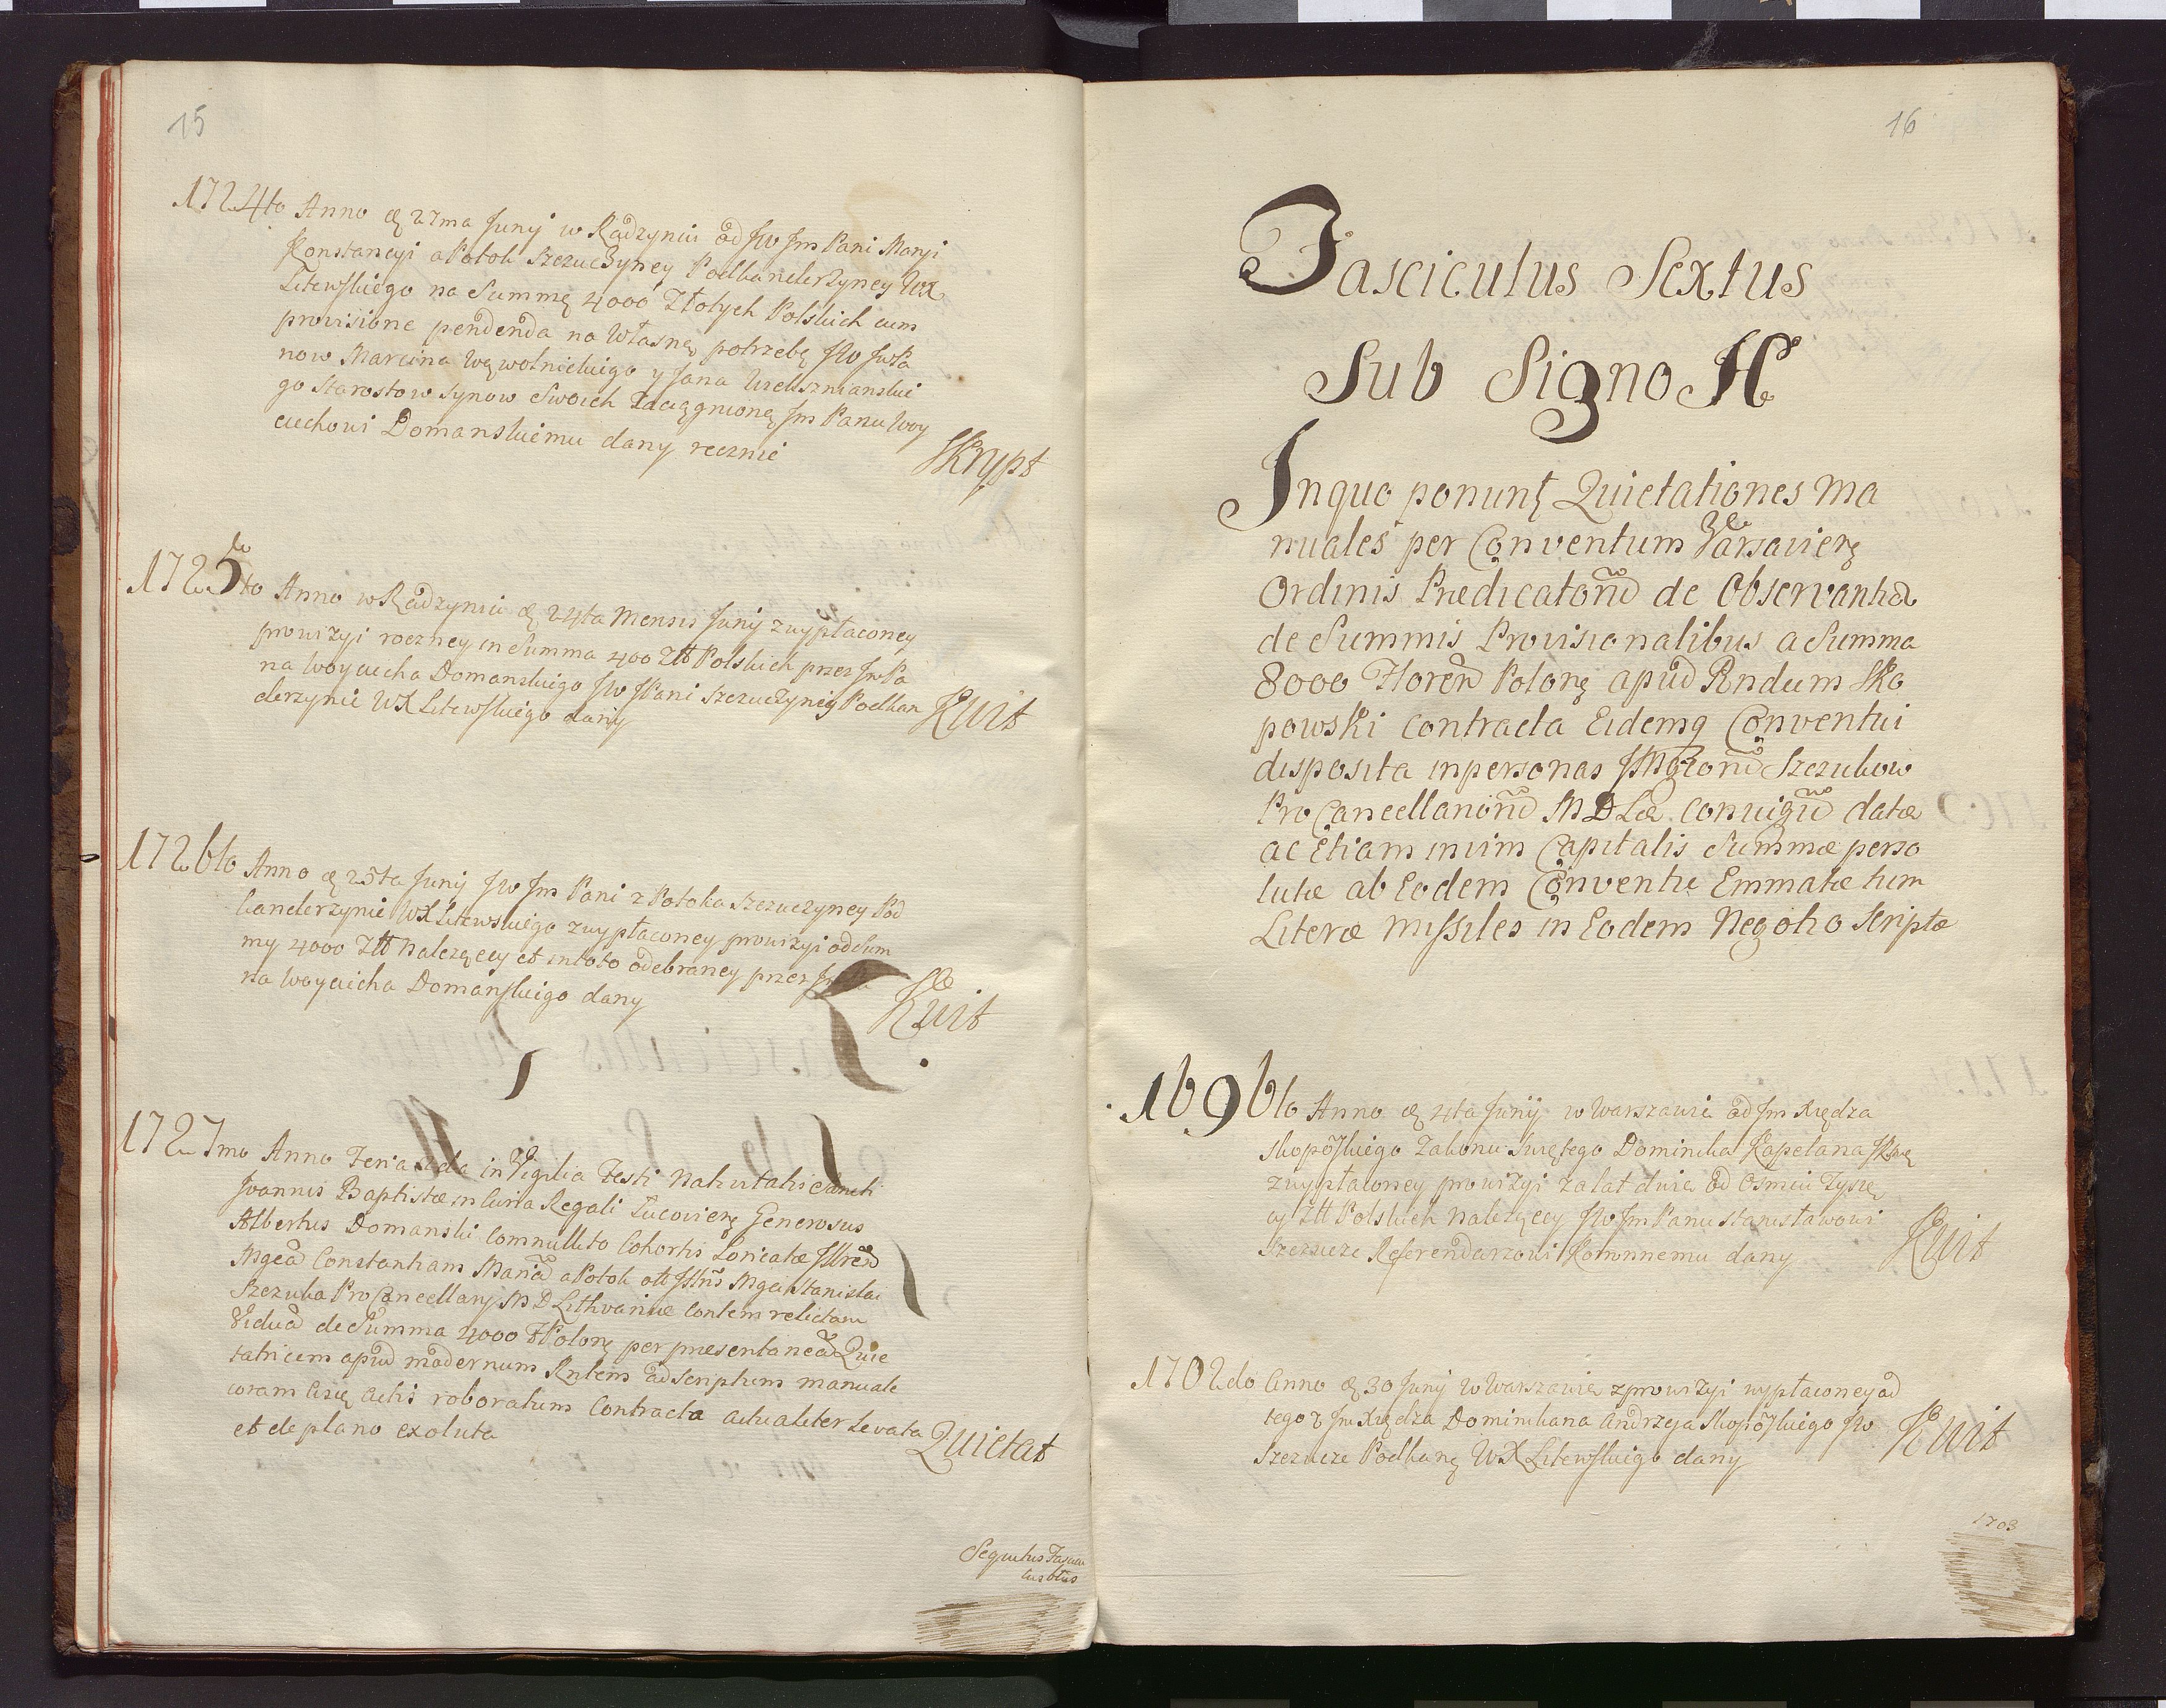 15
1724to Anno d 27ma Junij w Radzyniu od JW Jm Pani Maryi
Konstancyi a Potok Szczuczyney Podkanclerzyney WX
Litewskiego na Summę 4000 Złotych Polskich cum
provisione pendenda na Własną potrzebę JW Jmsć Pa
now Marcina Wąwolnickiego y Jana
go Starostow Synow Swoich Zaciągnioną Jm Panu Woy
ciechowi Domanskiemu dany ręcznie
Skrypt
1725to Anno w Radzyniu d 24ta Mensis Junij z wypłaconey
prowizyi roczney in Summa 400 Złł Polskich przez Jm Pa
na Woyciecha Domanskiego JW JPani Szczuczyney Podkan
clerzynie WX Litewskiego dany
Kwit
1726to Anno d 25ta Junij JW Jm Pani z Potoka Szczuczyney Pod
kanclerzynie WX Litewskiego z wypłaconey prowizyi od Sum
my 4000 Złł Należącey et in toto odebraney przez
na Woyciecha Domanskiego dany
Kwit
1727mo Anno Feria 2da in Vigilia Festi Nativitatis Sancti
Joannis Baptistæ in Curia Regali Lucovieñ Generosus
Albertus Domanski Commilito Cohortis Loricatæ Illrem
Mgcam Constantiam Mariā a Potok olt Illris Mgci Stanislai
Szczuka Pro Cancellarij M D Lithvaniæ Contem relictam
Viduā de Summa 4000 F Poloñ per præsentaneā Quie
tatricem apud modernum Rntem ad Scriptum manuale
coram Actis roboratum Contracta actualiter Levata
et de plano exoluta
Quietat
Sequitus Fascicu
lus 6tus
16
Fasciculus Sextus
Sub Signo H
In quo ponunt Quietationes Ma
nuales per Conventum Varsavieñ
Ordinis Predicatorū de Observantia
de Summis Provisionalibus a Summa
8000 Floren Poloñ apud Rndum Sko
powski Contracta Eidemq Conventui
disposita in personas JllMgcorū Szczukow
Pro Cancellariorū M D Læ Conuigū datæ
ac Etiam in vim Capitalis Summæ perso
lutæ ab Eodem Conventu Emmatæ tum
Literæ Missiles in Eodem Negotio Scriptæ
1696to Anno d 4ta Junij w Warszawie od Jm Xiędza
Skopowskiego Zakonu Swiętego Dominika Kapelana
z wypłaconey prowizyi za lat dwie od Osmiu Tysię
cy Złł Polskich Należącey JW Jm Panu Stanisławowi
Szczuce Referendarzowi Koronnemu dany
Kwit
1702do Anno d 30 Junij w Warszawie z prowizyi wypłaconey od
tegoz Jm Xiędza Dominikana Andrzeja Skopowskiego JW
Szczuce Podkanc WX Litewskiego dany
Kwit
1703